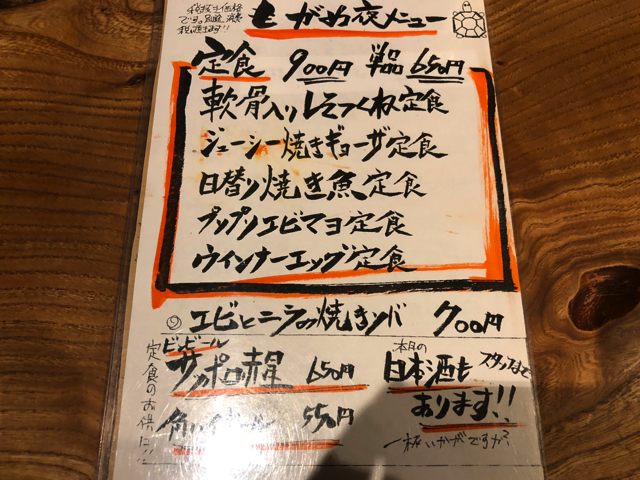 税抜き価格
です。別途消費
税頂きます!!
もがめ夜メニュー
定食 900円 単品 650円
軟骨入りしそつくね定食
ジューシー焼きギョーザ定食
日替り焼き魚定食
プップリエビマヨ定食
ウインナーエッグ定食
エビとニラの焼きソバ 700円
定食のお供に!!
ビンビール
サッポロ赤星 650円
角ハイボール 550円
本日の
日本酒も スタッフまで
あります!!
一杯いかがですか?